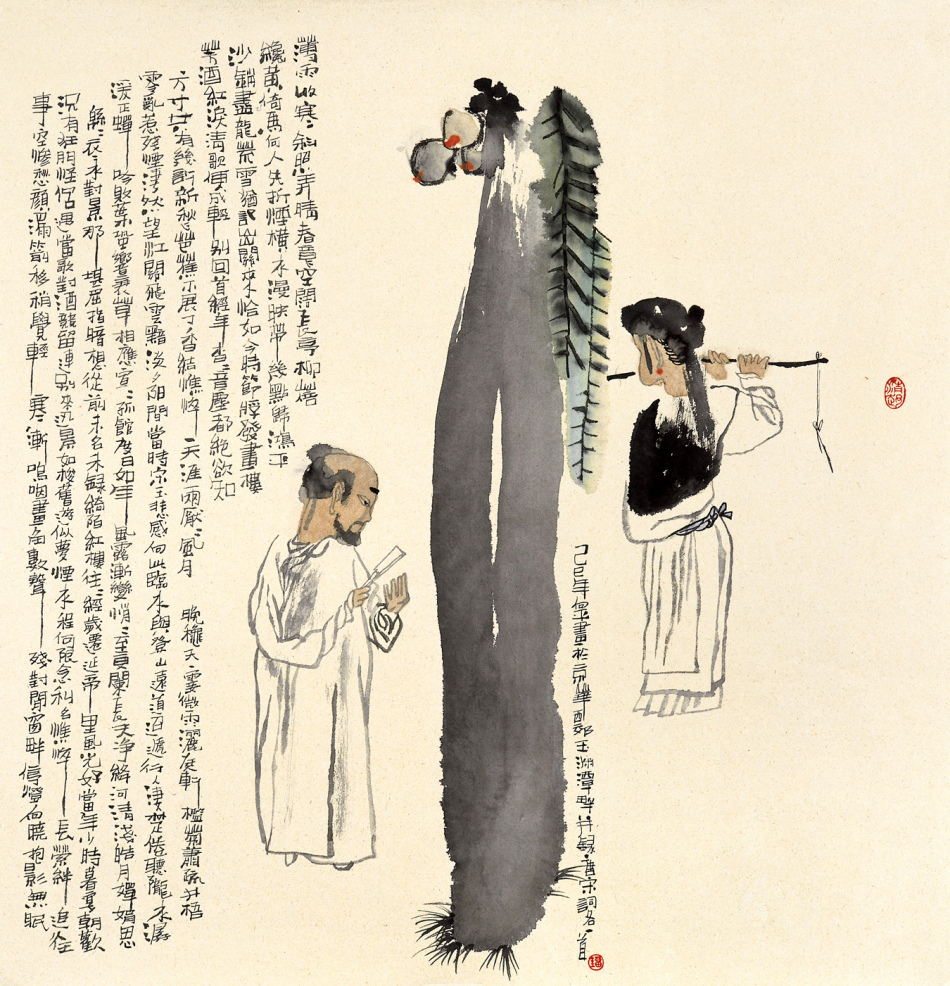 薄雨收寒〻斜照弄晴春意空闊長亭柳蓓
纔黃倚馬何人先折煙橫水漫映帶幾點歸鴻平
沙銷盡龍荒雪猶記出關來恰如今時節將發畫樓
芳酒紅淚清歌便成輕別回首經年杳〻音塵都絕欲知
方寸共有幾許新愁芭蕉不展丁香結憔悴一天涯兩厭〻風月 晚秋天一霎微雨灑庭軒檻菊蕭疏井梧
零亂惹殘煙淒然望江關飛雲黯淡夕陽間當時宋玉悲感向此臨水與登山遠道迢遞行人淒楚倦聽隴水潺
湲正蟬吟敗葉蛩響衰草相應喧〻孤館度日如年風露漸變悄〻至更闌長天淨絳河清淺皓月嬋娟思
綿〻夜永對景那堪屈指暗想從前未名未祿綺陌紅樓往〻經歲遷延帝里風光好當年少時暮宴朝歡
況有狂朋怪侶遇當歌對酒競留連別來迅景如梭舊游似夢煙水程何限念利名憔悴長縈絆追往
事空慘愁顏漏箭移稍覺輕寒漸嗚咽畫角數聲殘對閒窗畔停燈向曉抱影無眠
己巳年畫於京華西郊玉淵潭畔并錄唐宋詞各一首